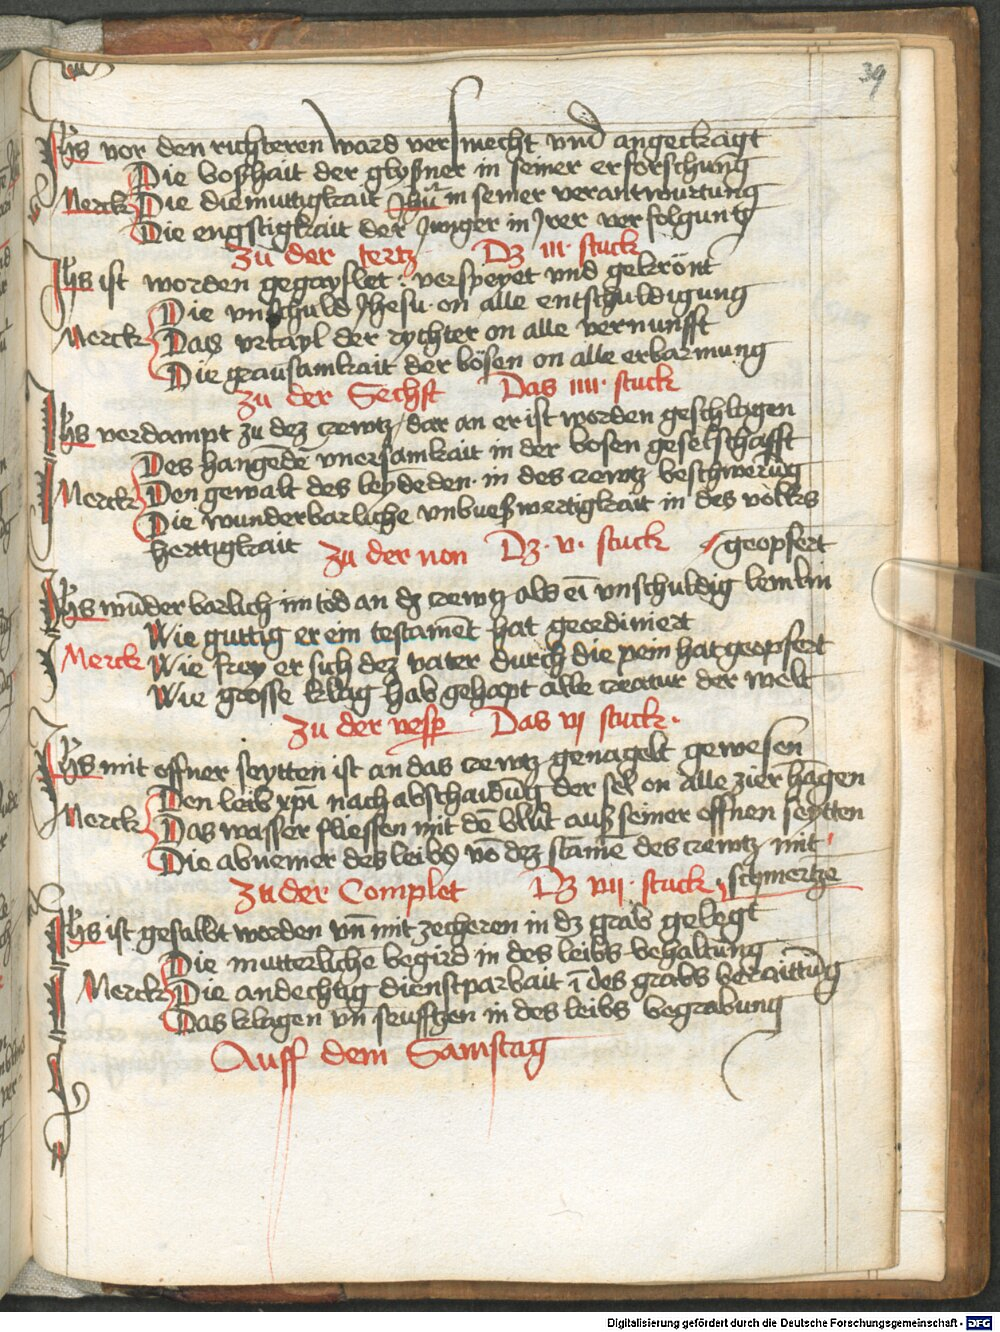 39
Jhs vor den richteren ward versmecht vnd angeclagt
Die boßhait der glyßner in seiner erforschung
Merck Die diemuttigkait Jhesu in seiner verantwurtung
Die engstigkait der Junger in Jrer verfolgung
Zu der tertz Dz III stuck
Jhs ist worden gegayslet · verspeyet vnd gekrönt
Die vnschuld Jhesu on alle entschuldigung
Merck Das vrtayl der rychter on alle vernunfft
Die grausamkait der bösen on alle erbarmung
Zu der Sechst Das IIII stuck
Jhs verdampt zu dez crewtz / dar an er ist worden geschlagen
Des hangedē vnersamkait in der bosen geselschafft
Merck Den gewalt des leydeden in des crewtz beschwerūg
Die wunderbarliche vnbueßwertigkait in des völks
herttigkait Zu der non Dz · v · stuck / geopfert
Jhs wūderbarlich im tod an dz crewtz als eī vnschuldig lemlin
Wie guttig er ein testamēt hat geordiniert
Merck Wie frey er sich dez vater durch die pein hat geopfert
Wie grosse klag hab gehapt alle creatur der welt
Zu der vesp Das vj stuck ·
Jhs mit offner seytten ist an das crewtz genagelt gewesen
Den leib xpī nach abschaidūg der sel on alle zier hāgen
Merck Das wasser fliessen mit dē blut auß seiner offnen seytten
Die abnemer des leibs vō dez stāme des crewtz mit
Zu der Complet Dz vii · stuck · schmertze
Jhs ist gesalbt worden vn̄ mit zecheren in dz grab gelegt
Die mutterliche begird in des leibs behaltung
Merck Die andechtig dienstparbait ī des grabs beraittūg
Das klagen vn̄ seufftzen in des leibs begrabung
Auff dem Samstag
Digitalisierung gefördert durch die Deutsche Forschungsgemeinschaft - DFG